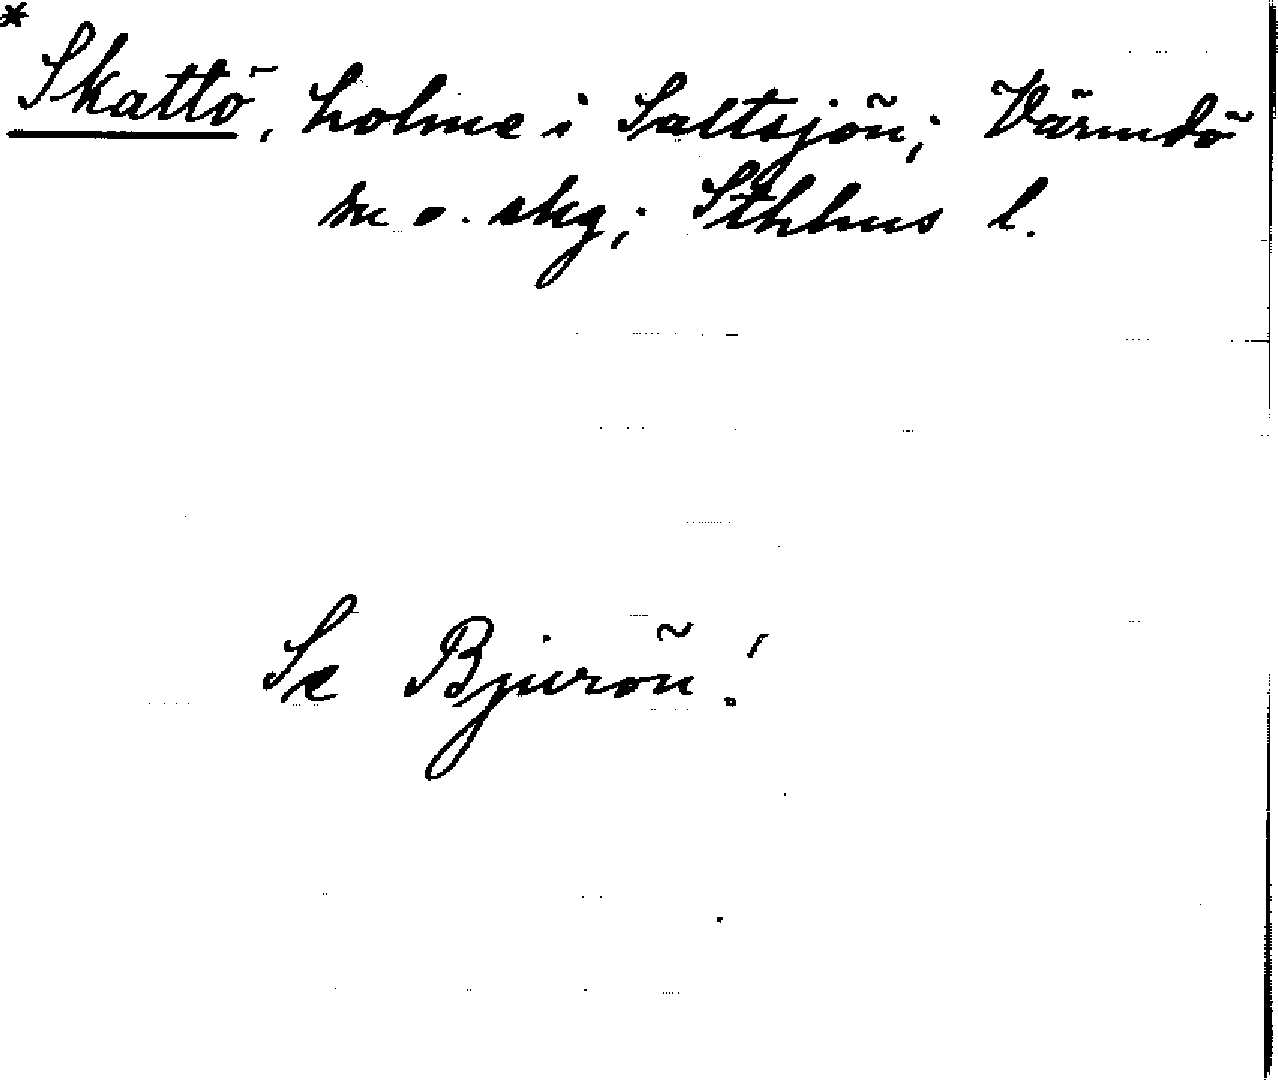 * Skattö, holme i Saltsjön; Värmdö
sn o. skg; Sthlms l.
Se Bjurön!